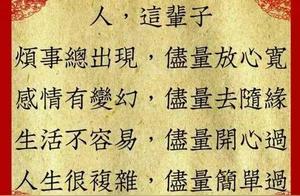 人，這輩子
煩事總出現，儘量放心寬
感情有變幻，儘量去隨緣
生活不容易，儘量開心過
人生很複雜，儘量簡單過